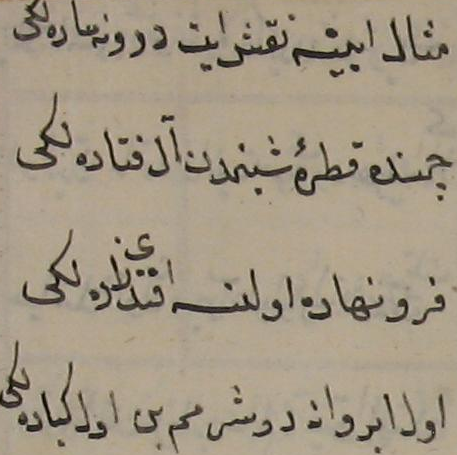 مثال ایینه نقش ایت درونه ساده لکی
چمنده قطرهٔ شبنمدن آل فتاده لکی
فرونهاده اولنسه
اول ابروان دوشر می اول کباده لکی